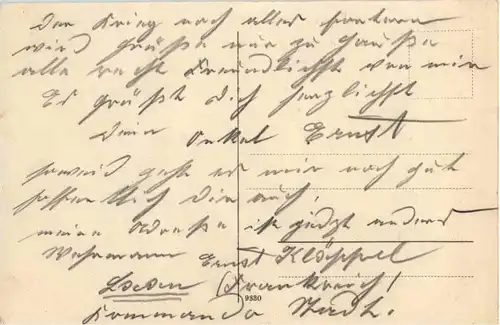 Der Krieg noch alles fordern
wird Grüße mir zu Hause
alle recht Freundlichst von mir
Es grüßt dich herzlichst
dein Onkel Ernst
soweid geht es mir noch gut
hoffentlich Dir auch.
meine Adresse ist jetzt anders
Wehrmann Ernst Klöppel
(Frankreich)
Kommando Stadt.
9330